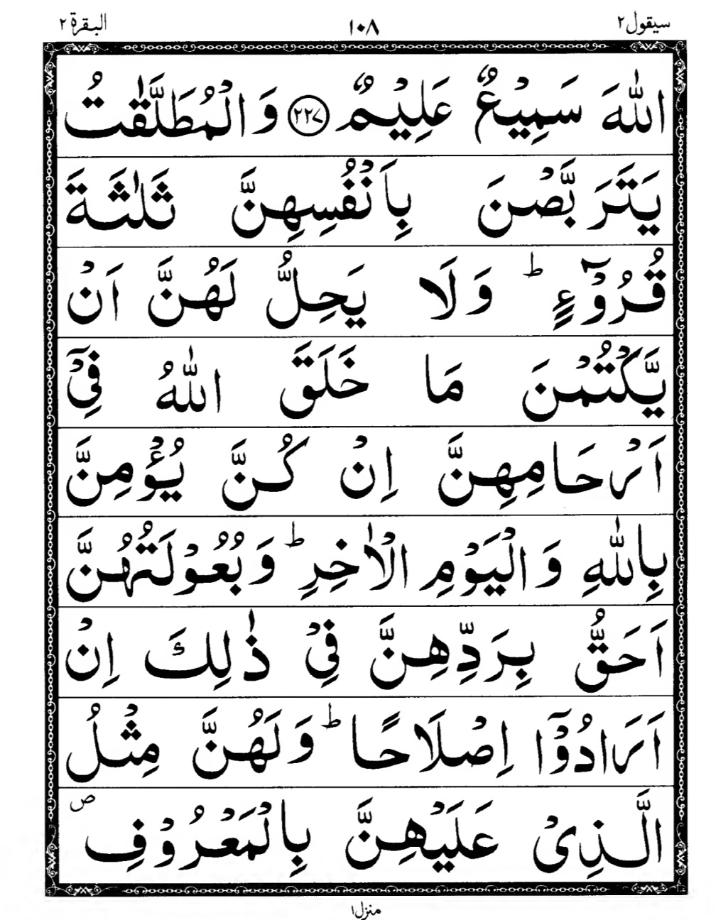 سيقول ٢ ١٠٨ البقرة ٢
اللّٰهَ سَمِيْعٌ عَلِيْمٌ ﴿٢٢٧﴾ وَالْمُطَلَّقٰتُ
يَتَرَبَّصْنَ بِاَنْفُسِهِنَّ ثَلٰثَةَ
قُرُوْٓءٍ ؕ وَلَا يَحِلُّ لَهُنَّ اَنْ
يَّكْتُمْنَ مَا خَلَقَ اللّٰهُ فِيْٓ
اَرْحَامِهِنَّ اِنْ كُنَّ يُؤْمِنَّ
بِاللّٰهِ وَالْيَوْمِ الْاٰخِرِ ؕ وَبُعُوْلَتُهُنَّ
اَحَقُّ بِرَدِّهِنَّ فِيْ ذٰلِكَ اِنْ
اَرَادُوْٓا اِصْلَاحًا ؕ وَلَهُنَّ مِثْلُ
الَّذِيْ عَلَيْهِنَّ بِالْمَعْرُوْفِ ۪
منزل ١